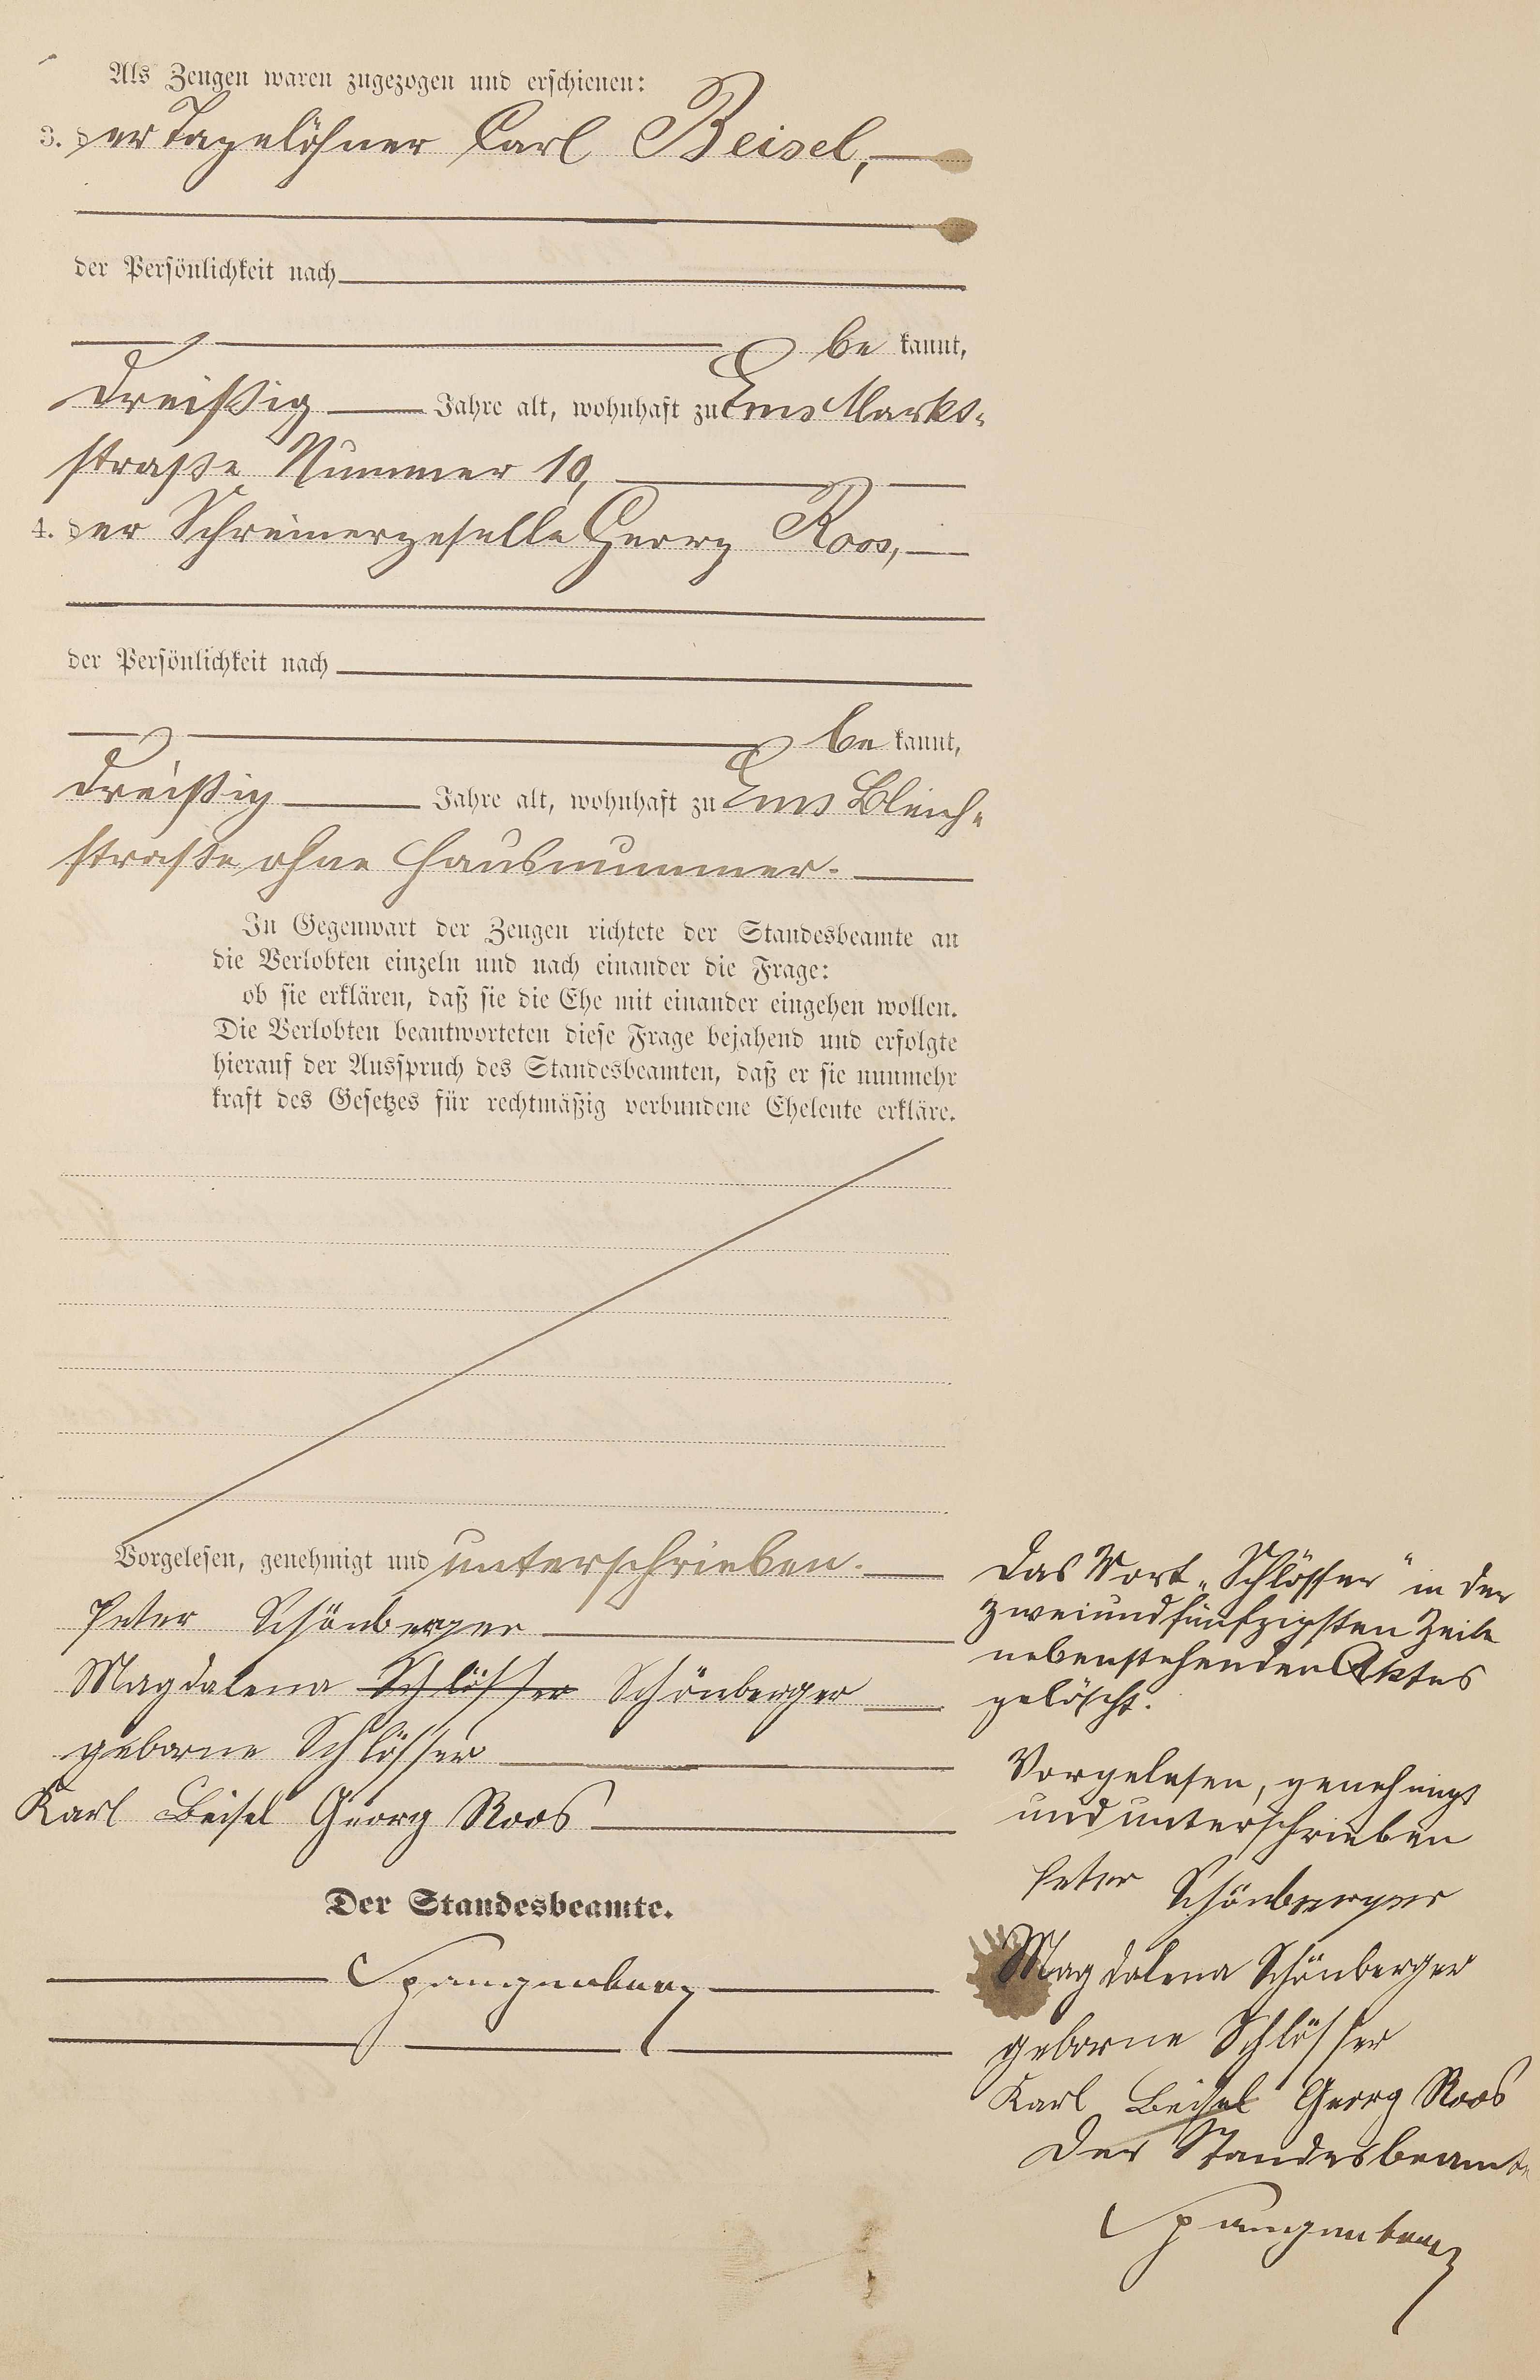 Als Zeugen waren zugezogen und erschienen:
3. der Tagelöhner Carl Beisel,
der Persönlichkeit nach
be kannt,
dreißig Jahre alt, wohnhaft zu Ems Markt-
straße Nummer 10,
4. der Schreinergeselle Georg Roos,
der Persönlichkeit nach
be kannt,
dreißig Jahre alt, wohnhaft zu Ems Bleich-
straße ohne Hausnummer.
In Gegenwart der Zeugen richtete der Standesbeamte an
die Verlobten einzeln und nach einander die Frage:
ob sie erklären, daß sie die Ehe mit einander eingehen wollen.
Die Verlobten beantworteten diese Frage bejahend und erfolgte
hierauf der Ausspruch des Standesbeamten, daß er sie nunmehr
kraft des Gesetzes für rechtmäßig verbundene Eheleute erkläre.
Vorgelesen, genehmigt und unterschrieben.
Peter Schönberger
Magdalena Schlösser Schönberger
geborne Schlösser
Karl Beisel Georg Roos
Der Standesbeamte.
Spangenberg
Das Wort „Schlösser" in der
zweiundfünfzigsten Zeile
nebenstehenden Aktes
gelöscht.
Vorgelesen, genehmigt
und unterschrieben
Peter Schönberger
Magdalena Schönberger
geborne Schlösser
Karl Beisel Georg Roos
Der Standesbeamte
Spangenberg